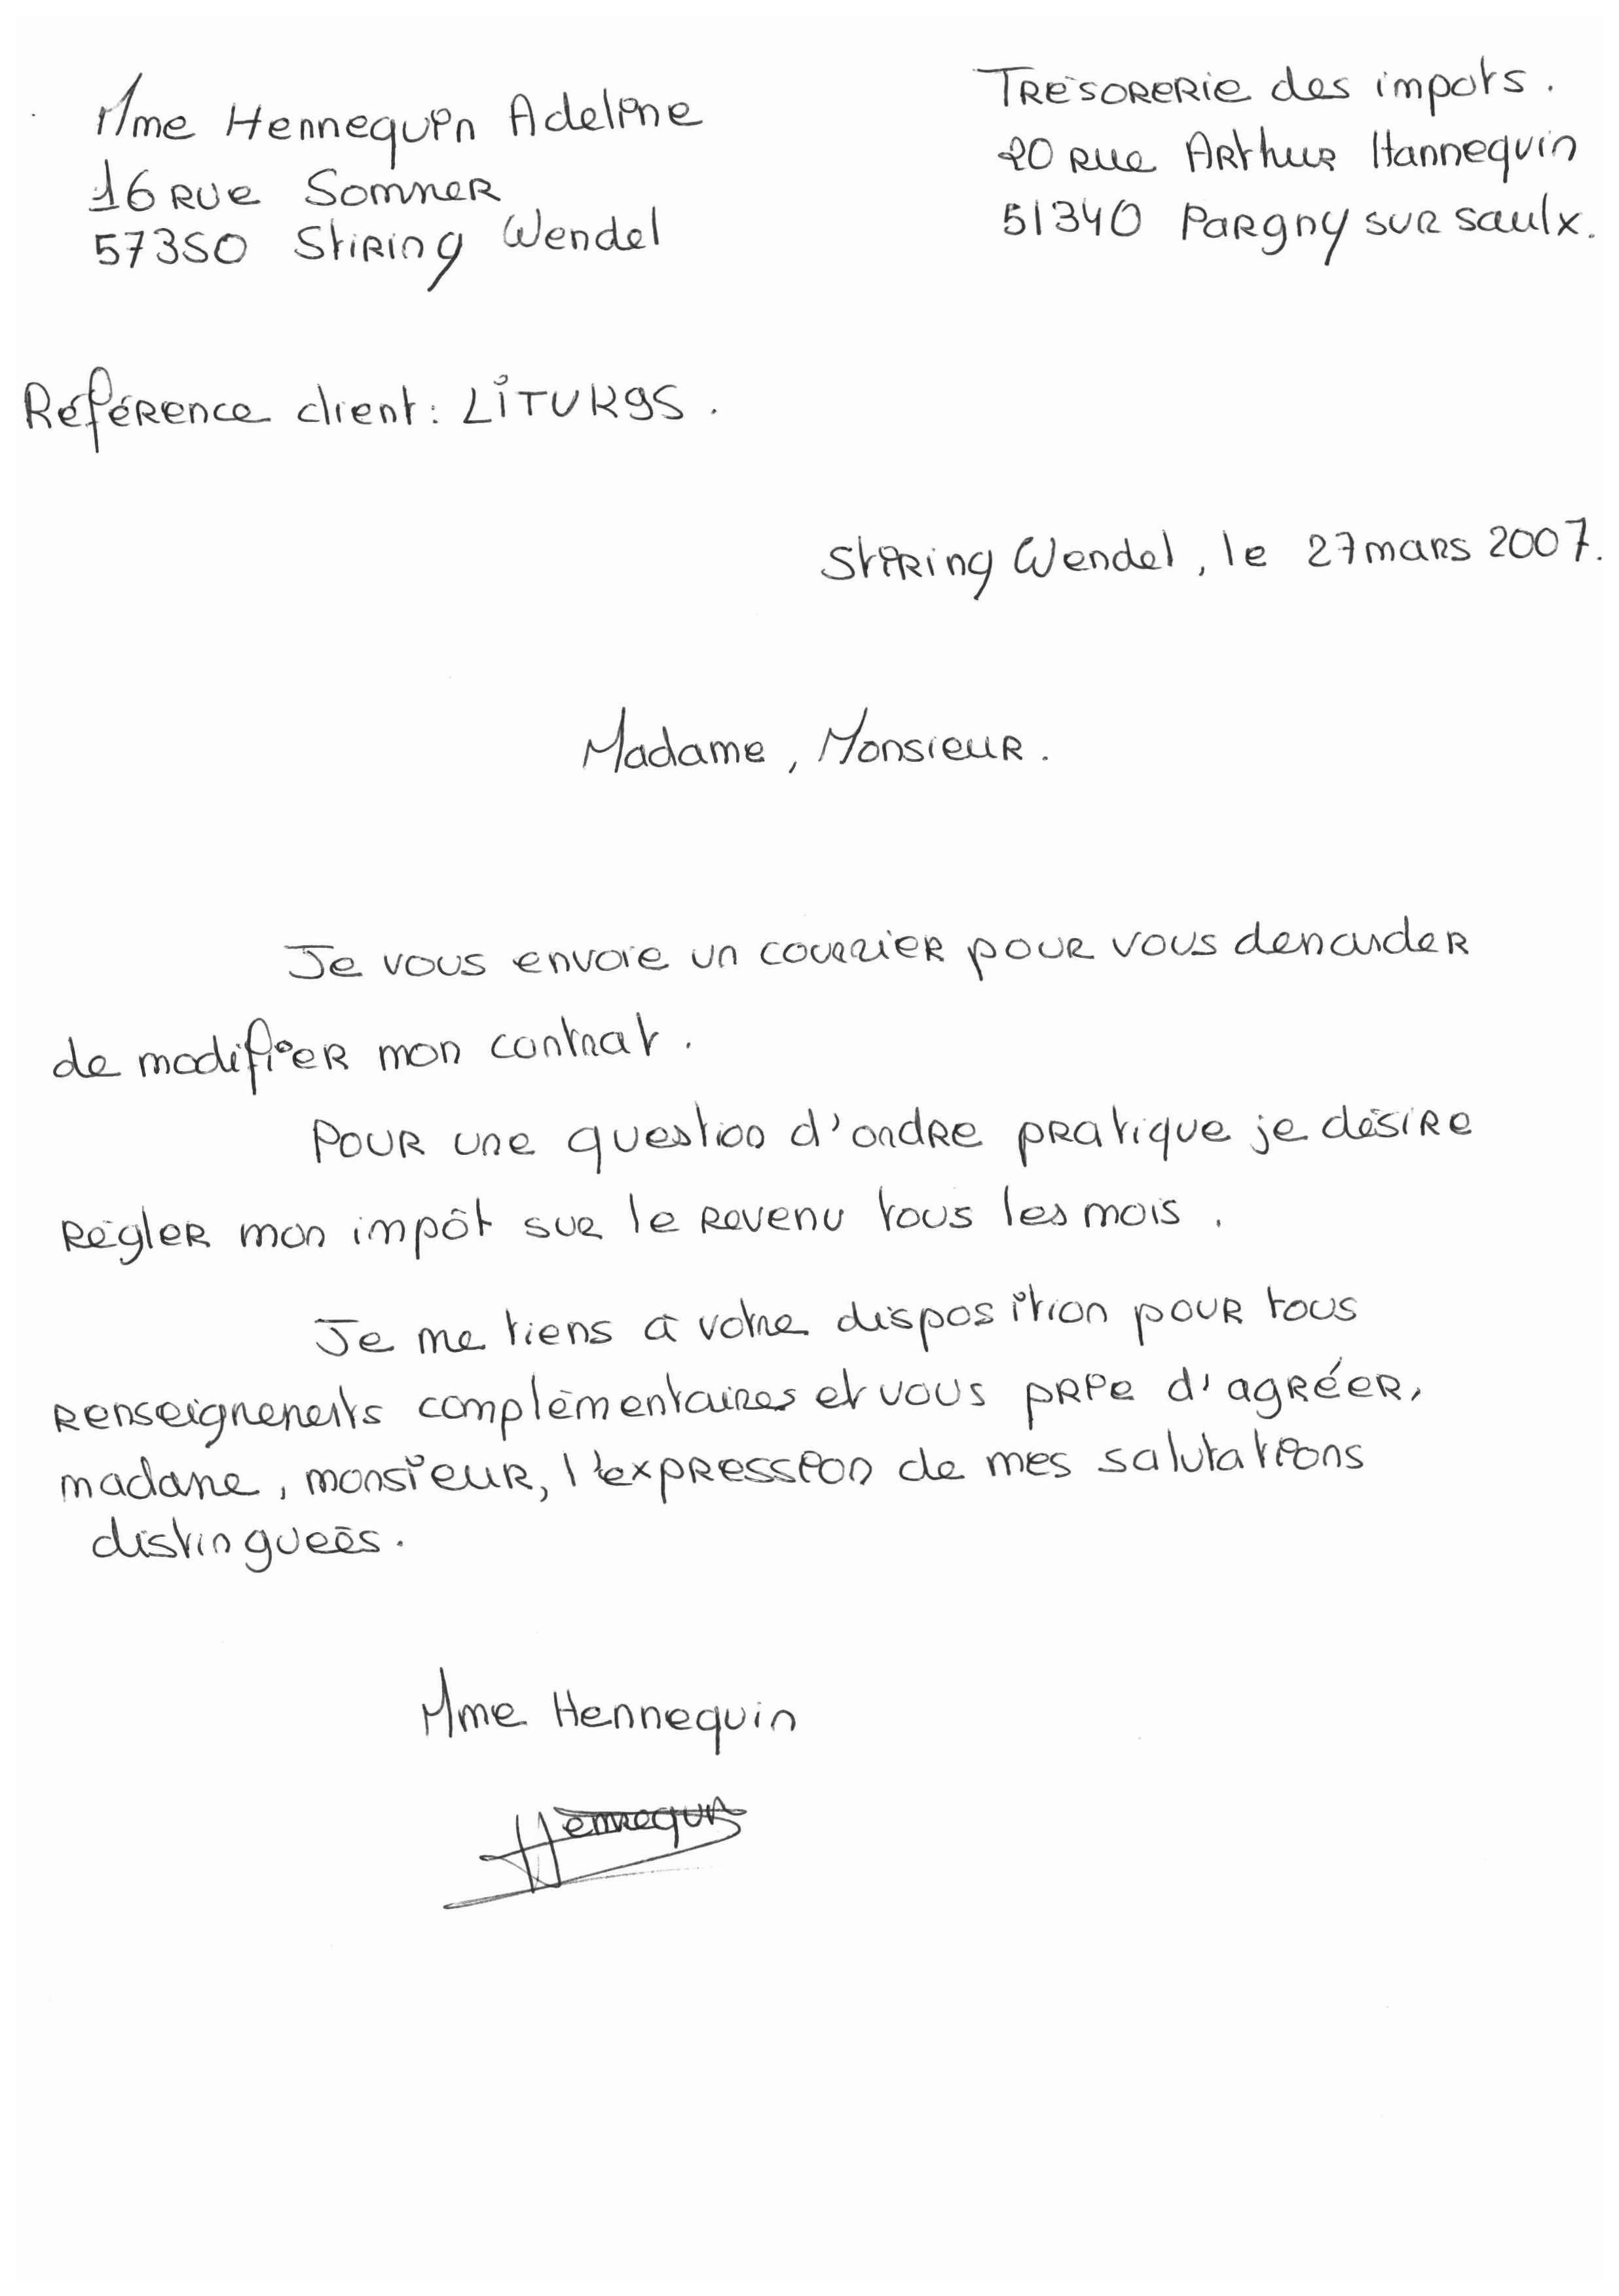 Mme Hennequin Adeline
16 rue Sommer
57350 Stiring Wendel
Trésorerie des impots.
20 rue Arthur Hannequin
51340 Pargny sur saulx.
Référence client : LITUK95.
Stiring Wendel, le 27 mars 2007.
Madame, Monsieur.
Je vous envoie un courrier pour vous demander
de modifier mon contrat.
Pour une question d'ordre pratique je désire
régler mon impôt sur le revenu tous les mois.
Je me tiens à votre disposition pour tous
renseignements complémentaires et vous prie d'agréer,
madame, monsieur, l'expression de mes salutations
distinguées.
Mme Hennequin
Hennequin